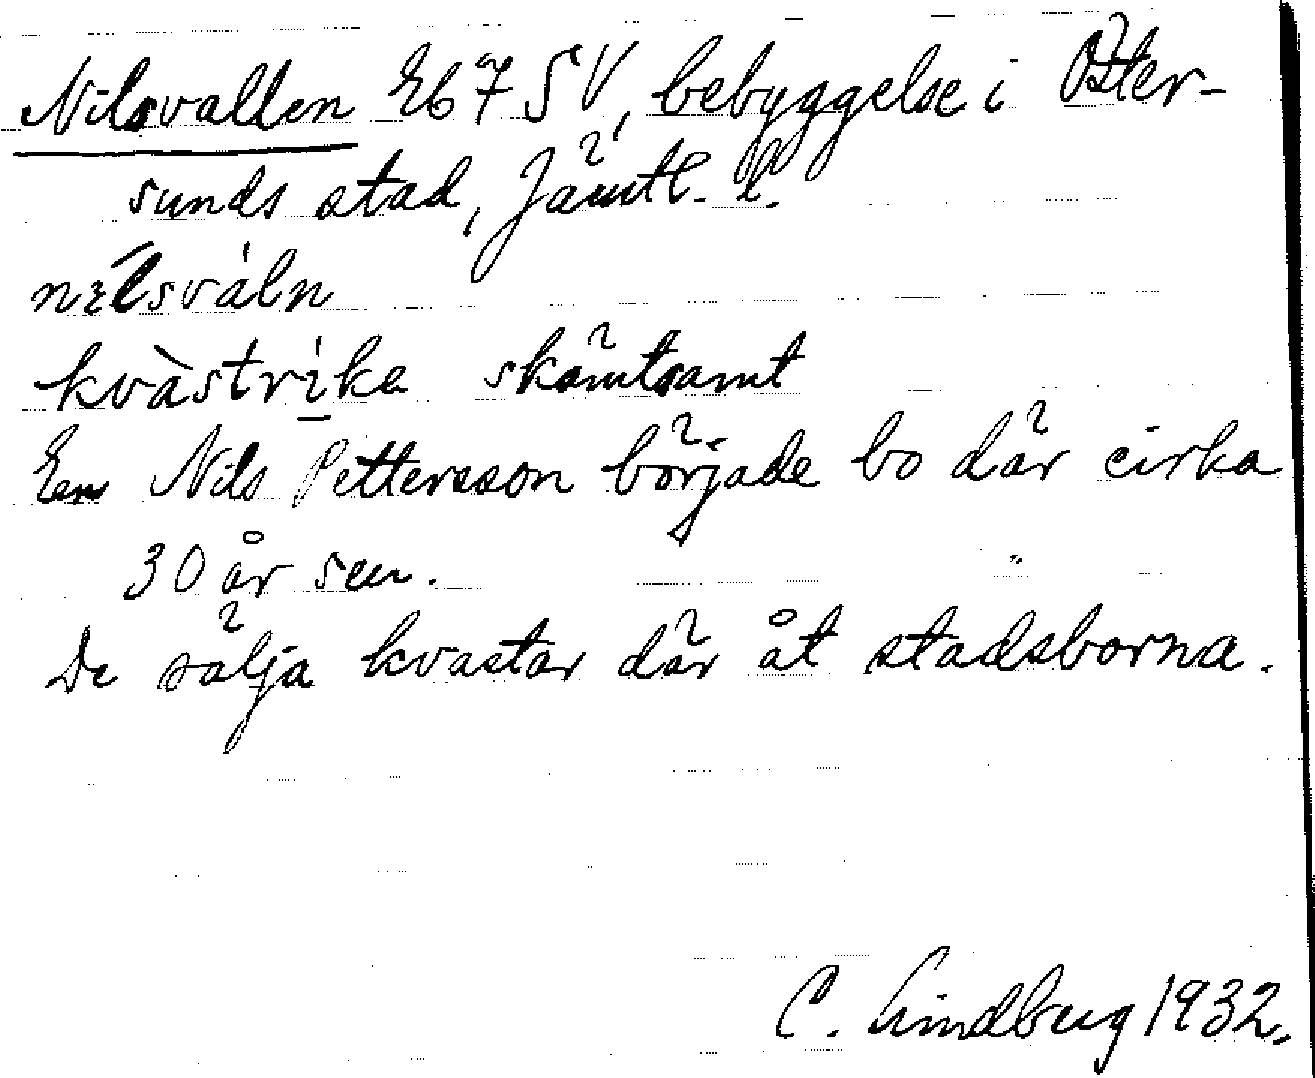 Nilsvallen Eb 7 SV, bebyggelse i Öster-
sunds stad, Jämtl. l.
nìlsváln
kvàstrìke skämtsamt
En Nils Pettersson började bo där cirka
30 år sen.
De sälja kvastar där åt stadsborna.
C. Lindberg 1932.